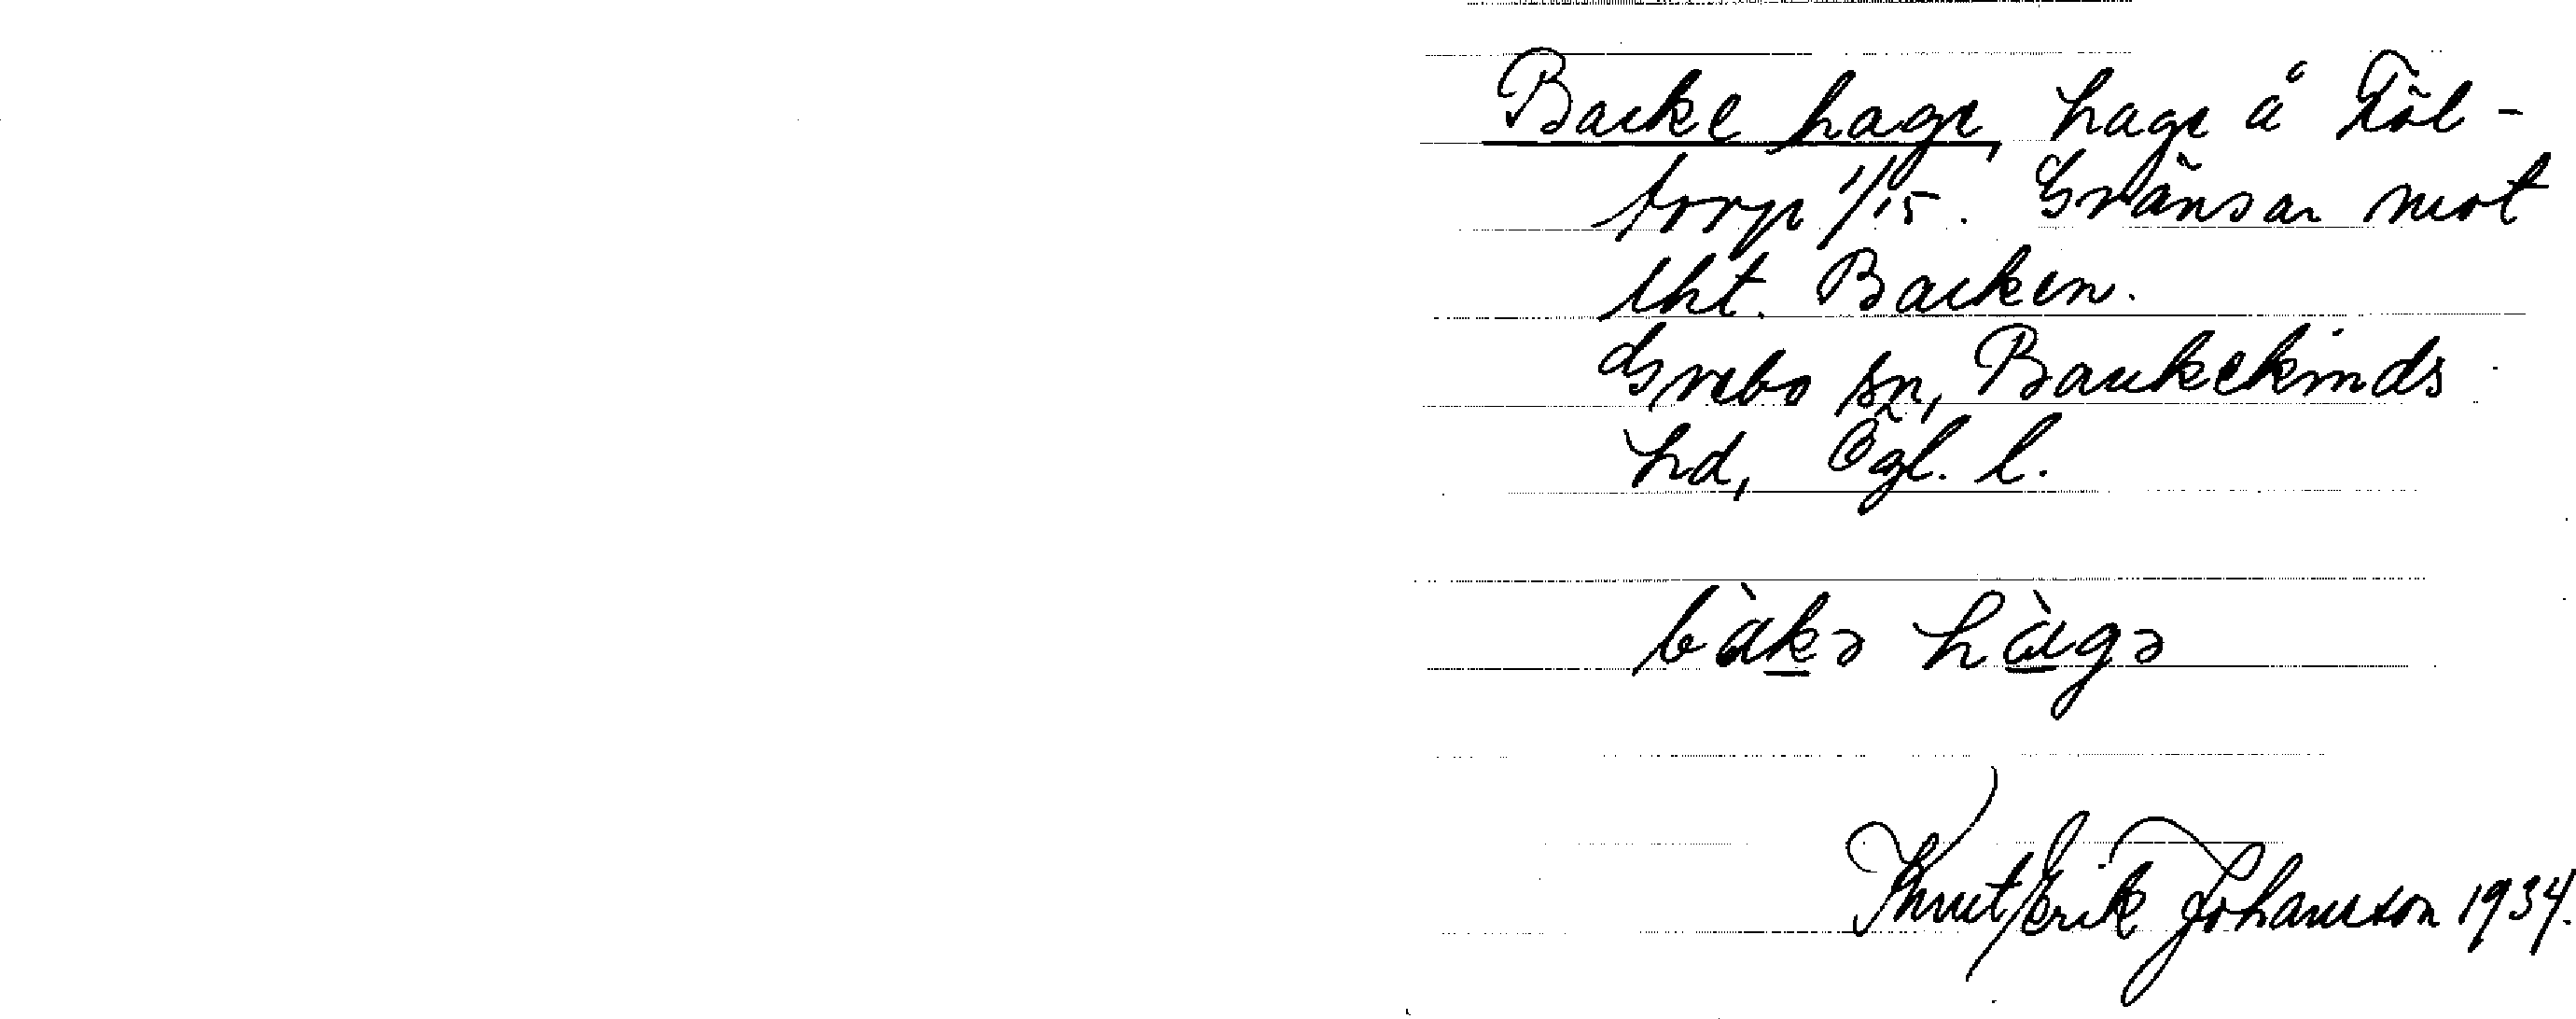 Backe hage, hage å Föl-
torp 1/15. Gränsar mot
lht. Backen.
Grebo sn, Bankekinds
hd, Ögl. l.
bàkə hàgə
Knut Erik Johansson 1934.